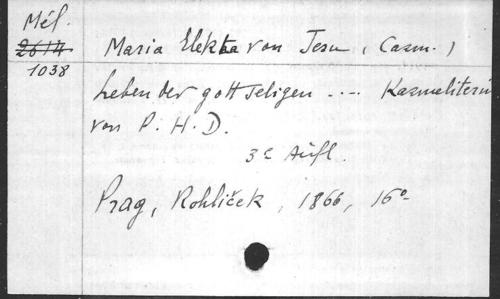 Mél.
2614
1038
Maria Elekta von Jesu, (Carm.)
Leben der gottseligen .... Karmeliterin
von P. H. D.
3e Aufl.
Prag, Rohlíček, 1866, 16°